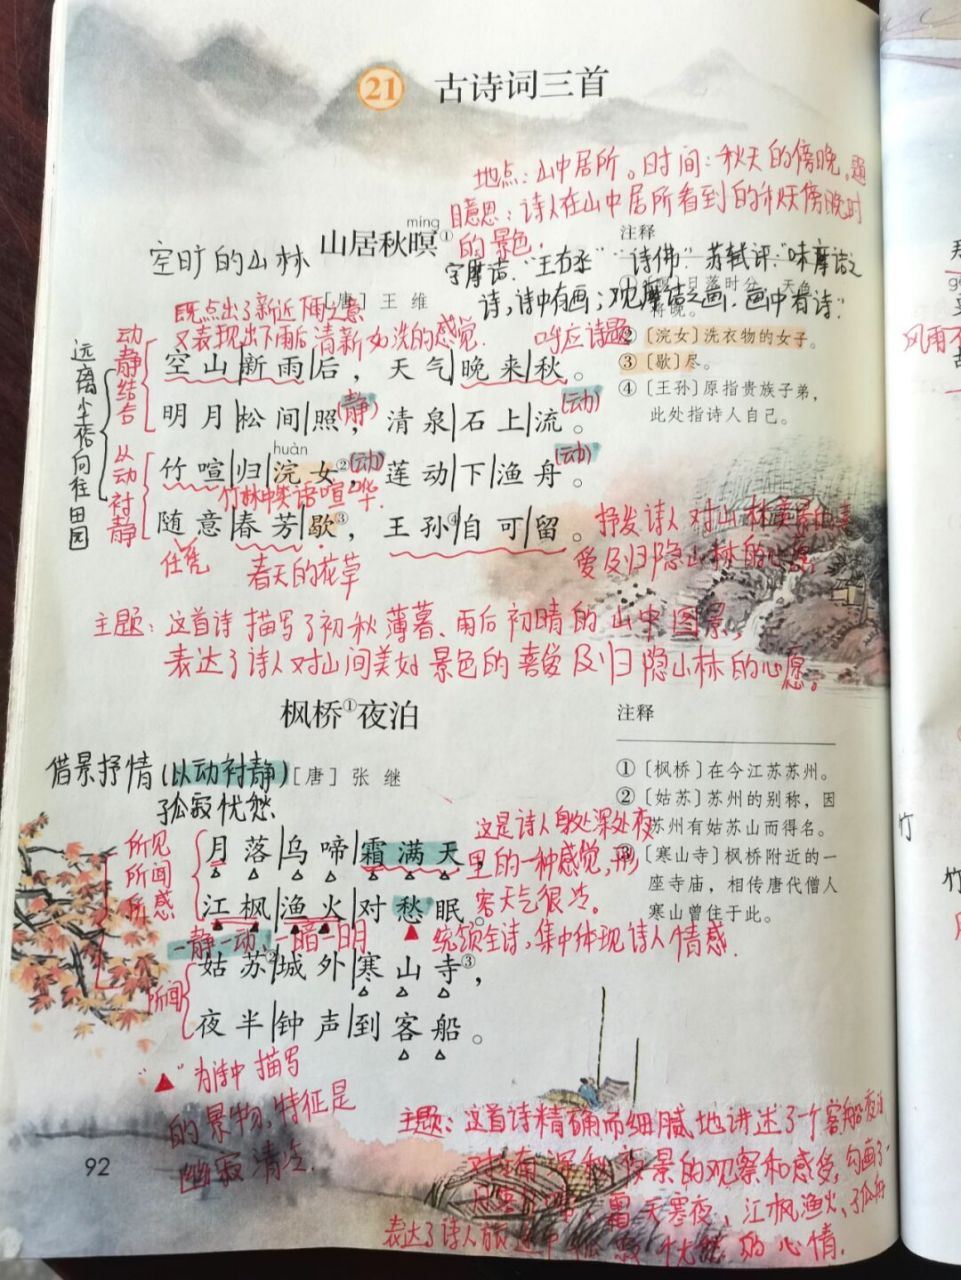 21 古诗词三首
地点：山中居所。时间：秋天的傍晚。题
目意思：诗人在山中居所看到的秋天傍晚时
的景色。
空旷的山林
míng
山居秋暝①
注释
字摩诘."王右丞" "诗佛" 苏轼评"味摩诘之
诗，诗中有画；观摩诘之画，画中有诗"
日落时分，天色
将晚。
[唐] 王 维
既点出了新近下雨之意
又表现出了雨后清新如洗的感觉.
呼应诗题
② 〔浣女〕洗衣物的女子。
③ 〔歇〕尽。
④ 〔王孙〕原指贵族子弟，
此处指诗人自己。
动静结合
以动衬静
空山|新雨|后，天气|晚来|秋。
明月|松间|照(静)，清泉|石上|流(动)。
huàn
竹喧|归|浣女②(动)，莲动|下|渔舟(动)。
竹林中笑语喧哗.
随意|春芳|歇③，王孙④|自可|留。
任凭
春天的花草
抒发诗人对山林美景的喜
爱及归隐山林的心愿
主题：这首诗描写了初秋薄暮、雨后初晴的山中图景，
表达了诗人对山间美好景色的喜爱及归隐山林的心愿。
枫桥①夜泊
注释
借景抒情(以动衬静)
孤寂忧愁
[唐] 张 继
① 〔枫桥〕在今江苏苏州。
② 〔姑苏〕苏州的别称，因
苏州有姑苏山而得名。
③ 〔寒山寺〕枫桥附近的一
座寺庙，相传唐代僧人
寒山曾住于此。
所见
所闻
所感
月落|乌啼|霜满天，
这是诗人身处深处夜
里的一种感觉，形
容天气很冷。
江枫|渔火|对愁眠。
一静一动、一暗一明
▲ 统领全诗，集中体现诗人情感.
所闻
姑苏②|城外|寒山寺③，
夜半|钟声|到客船。
"▲"为诗中描写
的景物，特征是
幽寂清冷.
主题：这首诗精确而细腻地讲述了一个客船夜泊
对江南深秋夜景的观察和感受，勾画了
霜天寒夜、江枫渔火、孤舟
表达了诗人
的心情.
92